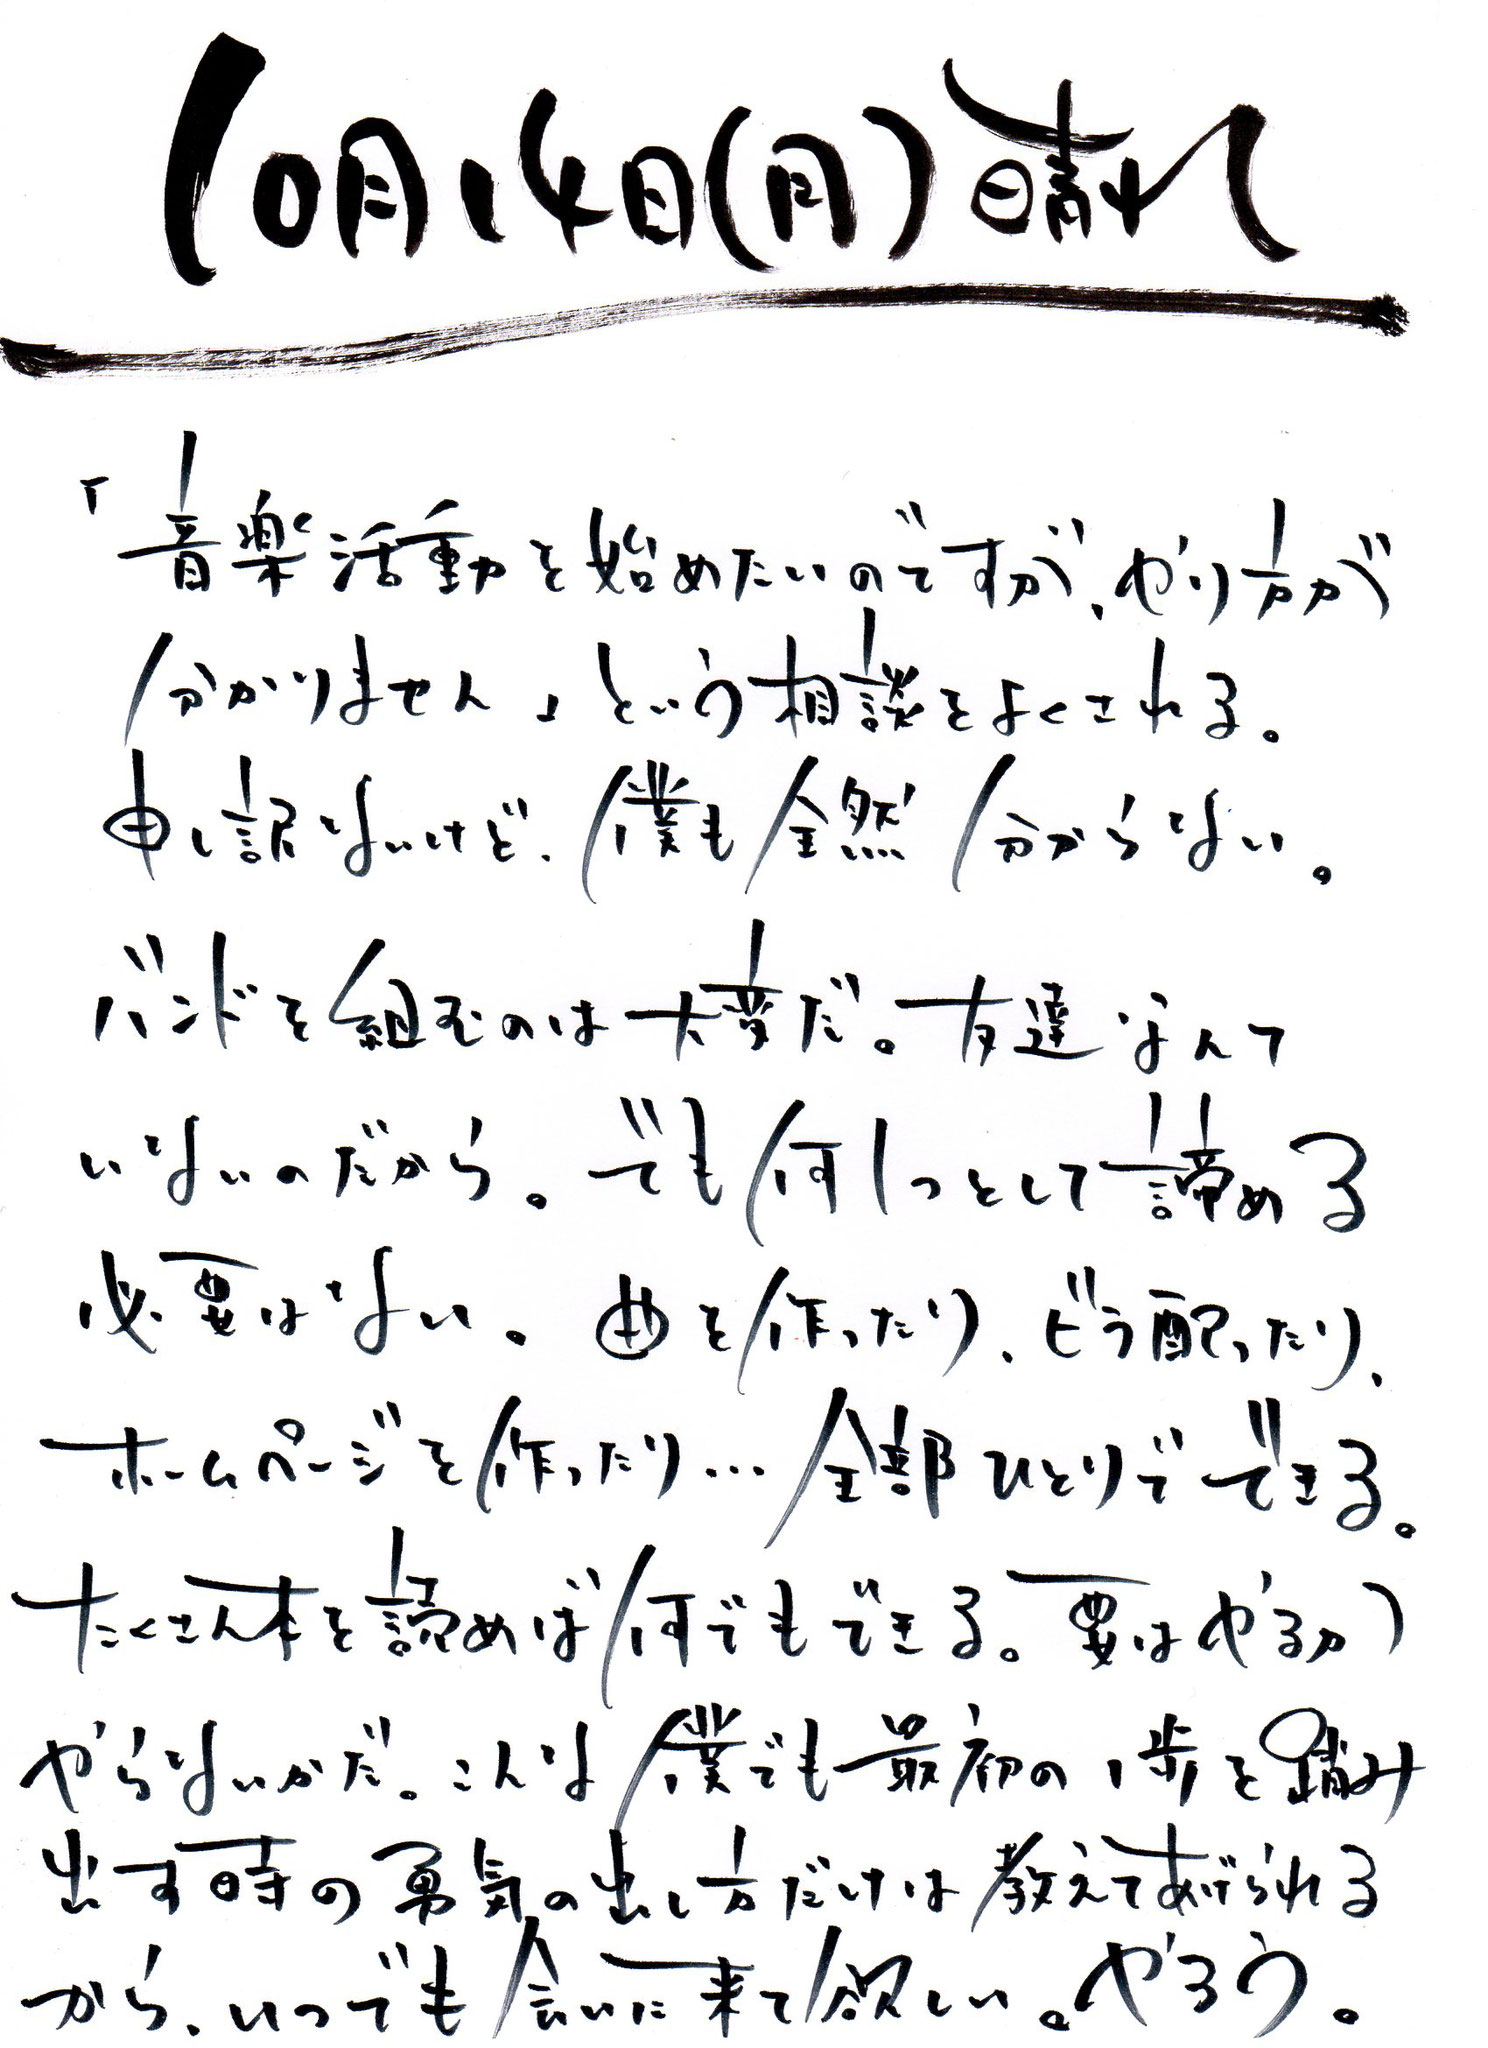 10月14日(月)晴れ
「音楽活動を始めたいのですが、やり方が
分かりません」という相談をよくされる。
申し訳ないけど、僕も全然分からない。
バンドを組むのは大変だ。友達なんて
いないのだから。でも何1つとして諦める
必要はない。曲を作ったり、どう配ったり、
ホームページを作ったり…全部ひとりでできる。
たくさん本を読めば何でもできる。要はやるか
やらないかだ。こんな僕でも最初の1歩を踏み
出す時の勇気の出し方だけは教えてあげられる
から、いつでも会いに来て欲しい。やろう。